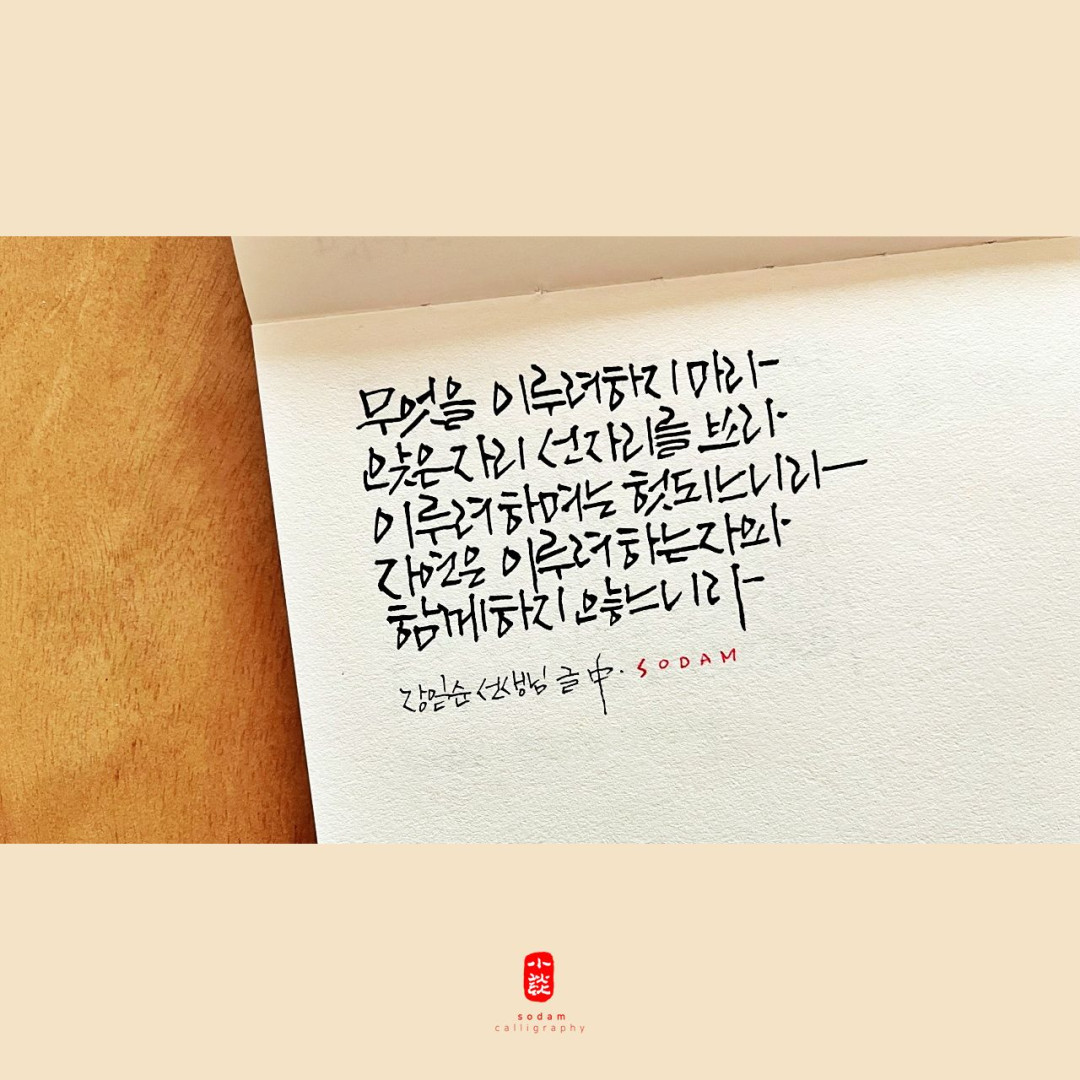 무엇을 이루려하지 마라
앉은자리 선자리를 보라
이루려 하며는 헛되느니라
자연은 이루려 하는자와
함께하지 않느니라
장일순 선생님 글 中. SODAM
小談
sodam
calligraphy